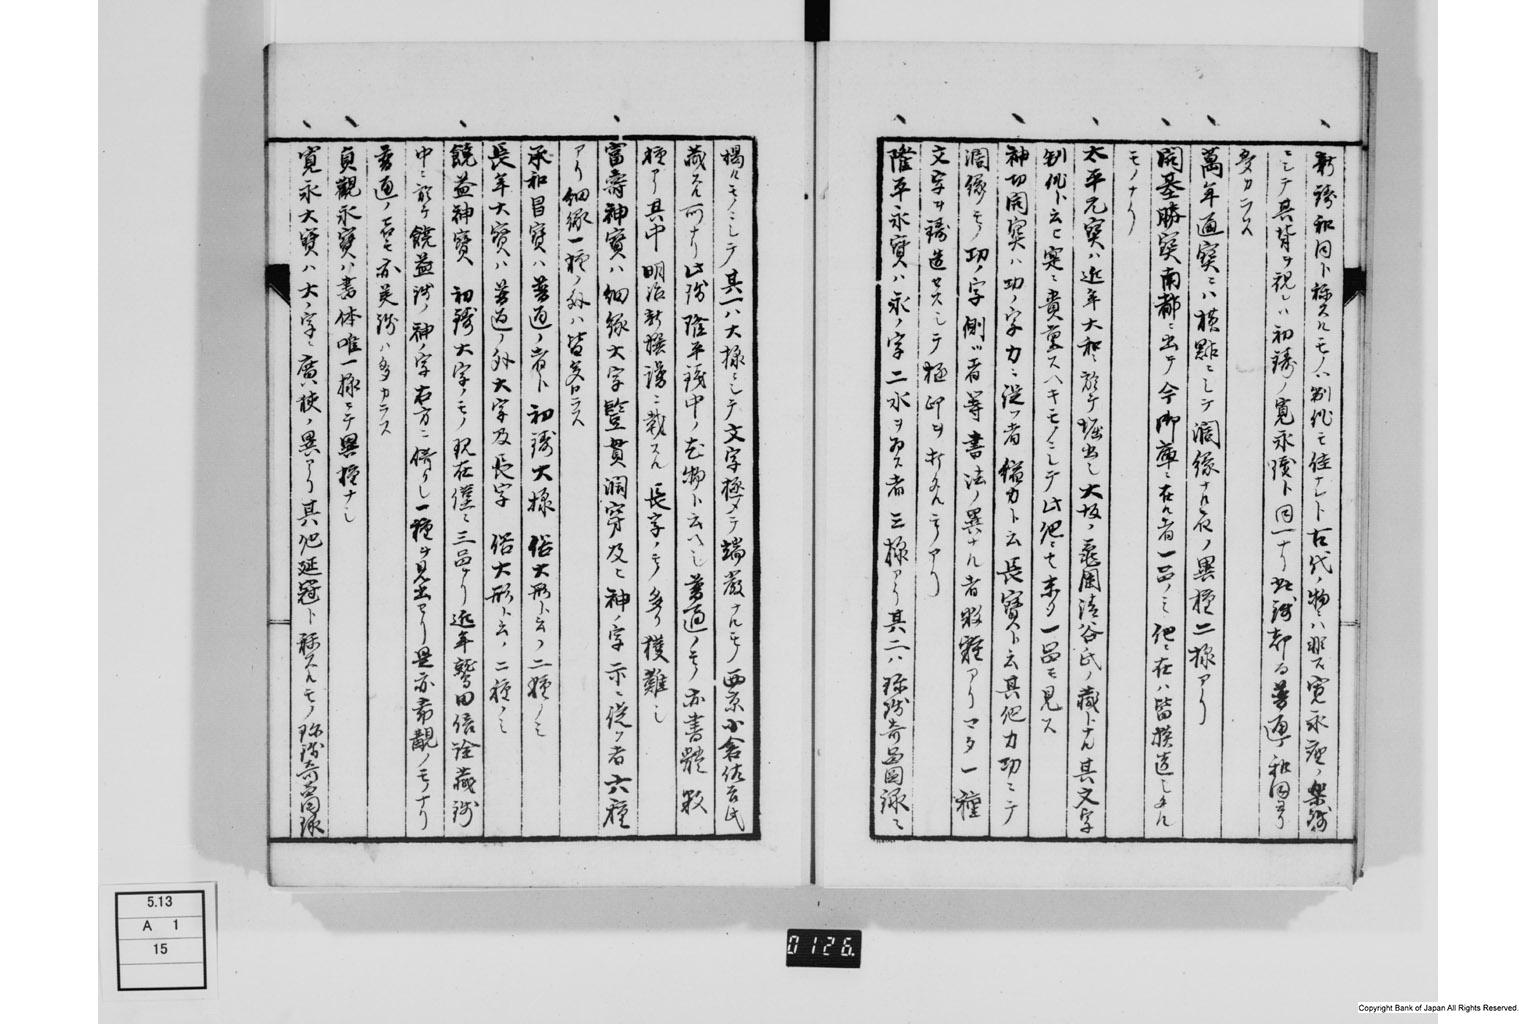 新鋳和同ト称スルモノハ別種モ佳ナレト古代ノ物ニハ非ス寛永座ノ楽銭
ニシテ其背ヲ視レハ初鋳ノ寛永銭ト同一ナリ此銭都テ普通ノ和同ヨリ
多カラス
萬年通宝ニハ横點ニシテ濶縁ナル者ノ異種二様アリ
開基勝宝南都ニ出テ今御庫ニ在ル者一品ノミ他ニ在ハ皆摸造シタル
モノナリ
太平元宝ハ近年大和ニ於テ堀出シ大坂ノ亀岡清谷氏ノ蔵トナル其文字
別作ト云ヒ寔ニ貴重スヘキモノニシテ此他ニモ未タ一品モ見ス
神功開宝ハ功ノ字力ニ従フ者縮力ト云長宝ト云其他力功ニテ
濶縁モノ功ノ字側ツ者等書法ノ異ナル者数種アリマタ一種
文字ヲ鋳造セスシテ極印ヲ打タルモアリ
隆平永宝ハ永ノ字二水ヲ为ス者三様アリ其二ハ珍銭奇品図録ニ
掲ルモノニシテ其一ハ大様ニシテ文字極メテ端厳ナルモノ西京小倉佐公氏
蔵スル所ナリ此銭隆平銭中ノ尤物ト云ヘシ普通ノモノ亦書體数
種アリ其中明治新撰譜ニ載スル長字ノモノ多ク獲難シ
富寿神宝ハ細縁大字豎貫濶穿及ヒ神ノ字示ニ従フ者六種
アリ細縁一種ノ外ハ皆多カラス
承和昌宝ハ普通ノ者ト初鋳大様俗大形ト云フ二種ノミ
長年大宝ハ普通ノ外大字及長字俗大形ト云フ二種ノミ
饒益神宝初鋳大字ノモノ現在僅ニ三品アリ近年鷲田倍詮蔵銭
中ニ於テ饒益銭ノ神ノ字右方ニ倚リシ一種ヲ見出アリ是亦希覯ノモノナリ
普通ノ者モ亦美銭ハ多カラス
貞観永宝ハ書体唯一様ニテ異種ナシ
寛永大宝ハ大ノ字ニ廣ハ狭ノ異アリ其他延冠ト称スルモノ珍銭奇品図録
5.13
A 1
15
0126.
Copyright Bank of Japan All Rights Reserved.